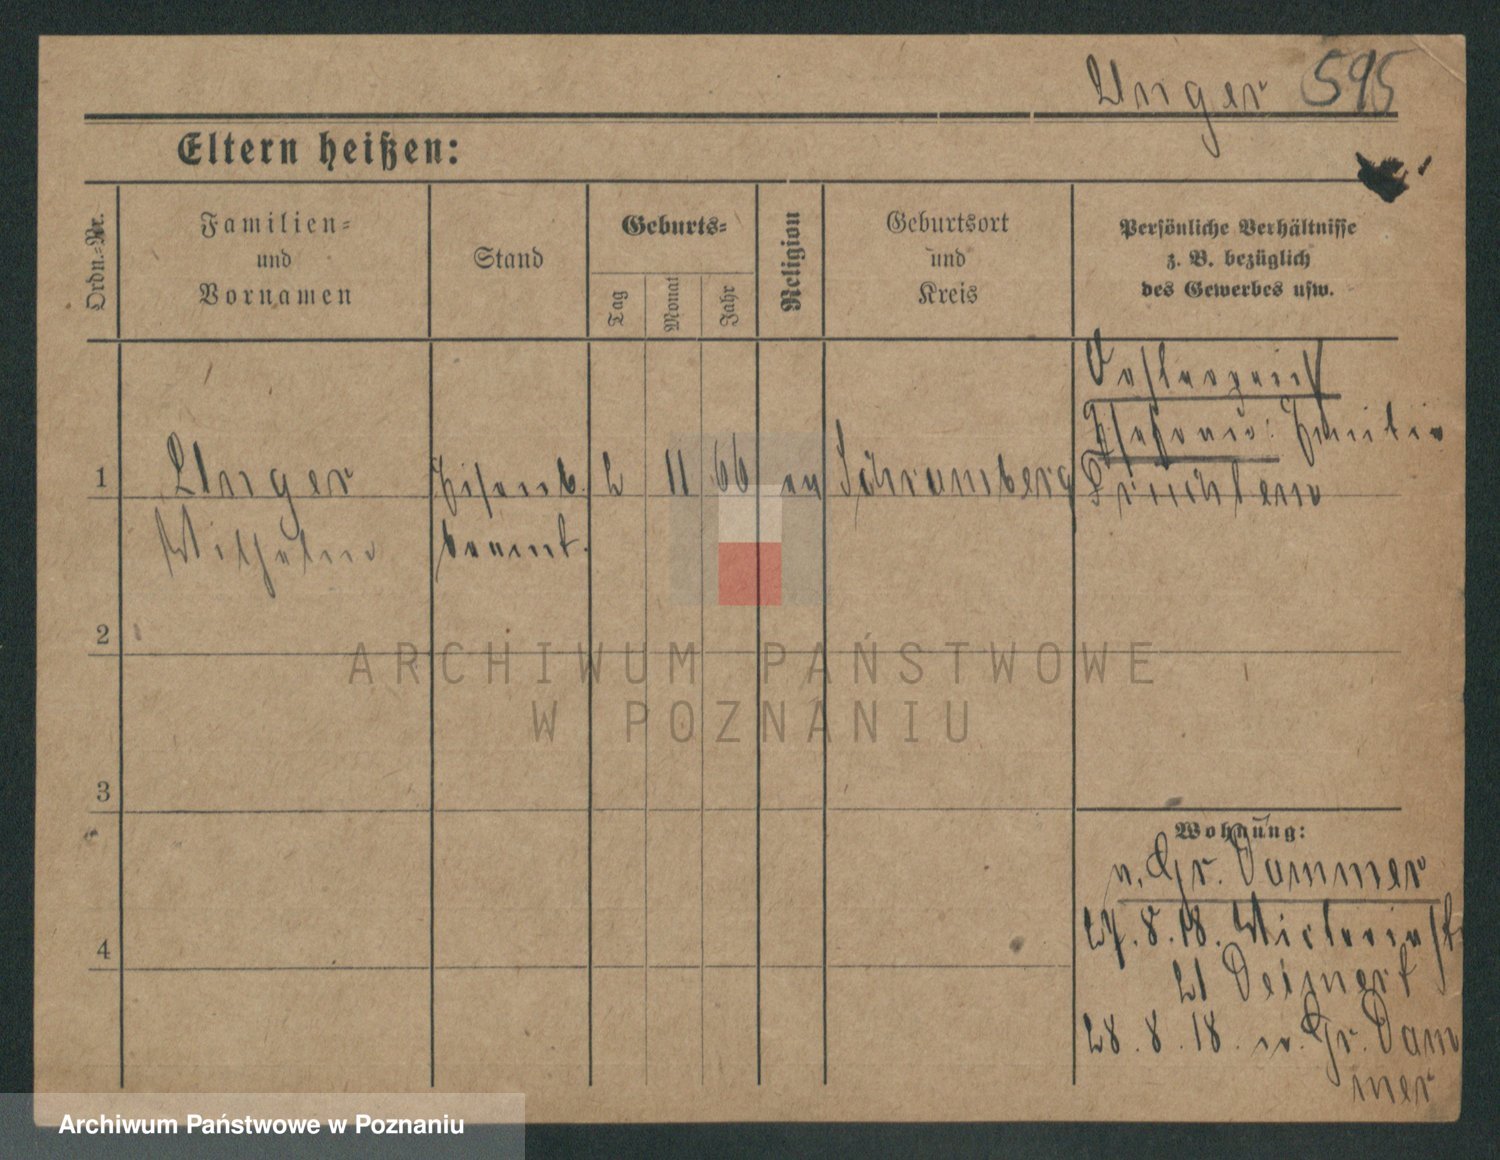 Unger 595
Eltern heißen:
Ordn.-Nr.
Familien-
und
Vornamen
Stand
Geburts-
Tag
Monat
Jahr
Religion
Geburtsort
und
Kreis
Persönliche Verhältnisse
z. B. bezüglich
des Gewerbes usw.
1
Unger
Wilhelm
Eisenb.
beamt.
2 11 66 ev
Schramberg
Ehefrau: Emilie
2
3
4
Wohnung:
n. Gr. Dammer
27.8.18. Victoriast.
21 Deinert
28.8.18. n. Gr. Dam
mer
ARCHIWUM PAŃSTWOWE
W POZNANIU
Archiwum Państwowe w Poznaniu